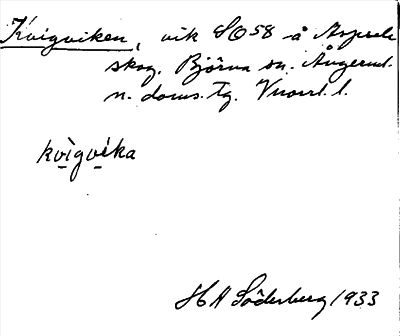 Kvigviken, vik SO58 å Aspsele
skog. Björna sn. Ångerml.
n. doms. tg. Vnorrl. l.
kvìgvíka
HA Söderberg 1933